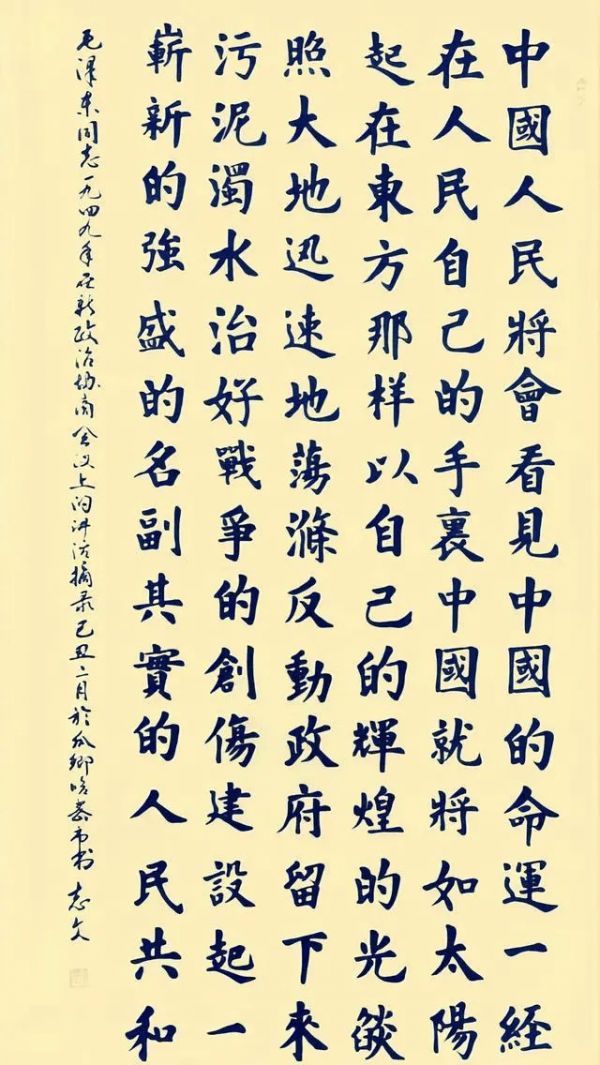 中國人民將會看見中國的命運一經
在人民自己的手裏中國就將如太陽
起在東方那样以自己的輝煌的光燄
照大地迅速地蕩滌反動政府留下來
污泥濁水治好戰爭的創傷建設起一
嶄新的強盛的名副其實的人民共和
毛澤东同志一九四九年在新政治协商会议上的讲话摘录己丑二月於鄉志文